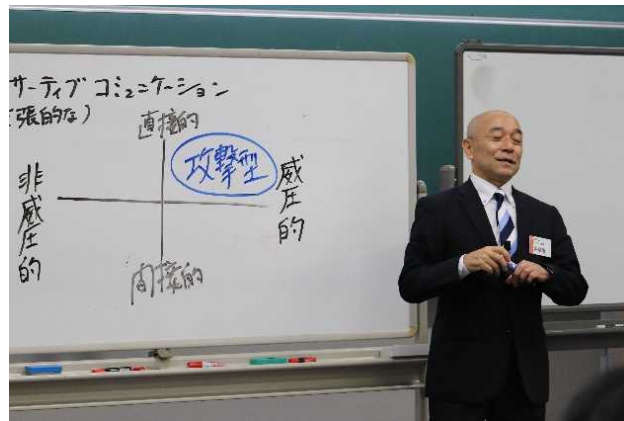 サーティブ コミュニケーション
張的な)
直接的
攻撃型
威圧的
非威圧的
間接的